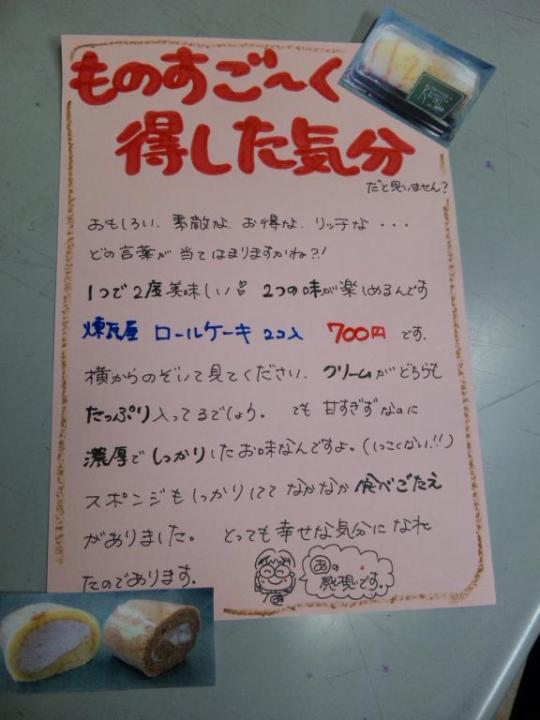 ものすご〜く
得した気分
だと思いません?
おもしろい、素敵な、お得な、リッチな・・・
どの言葉が当てはまりますかね?!
1つで2度美味しい 2つの味が楽しめるんです
煉瓦屋 ロールケーキ 2コ入 700円 です。
横からのぞいて見てください。クリームがどちらも
たっぷり入ってるでしょう。 でも 甘すぎずなのに
濃厚でしっかりしたお味なんですよ。(しつこくない!!)
スポンジもしっかりしてて なかなか食べごたえ
がありました。 とっても幸せな気分になれ
たのであります。
あの
感想です。